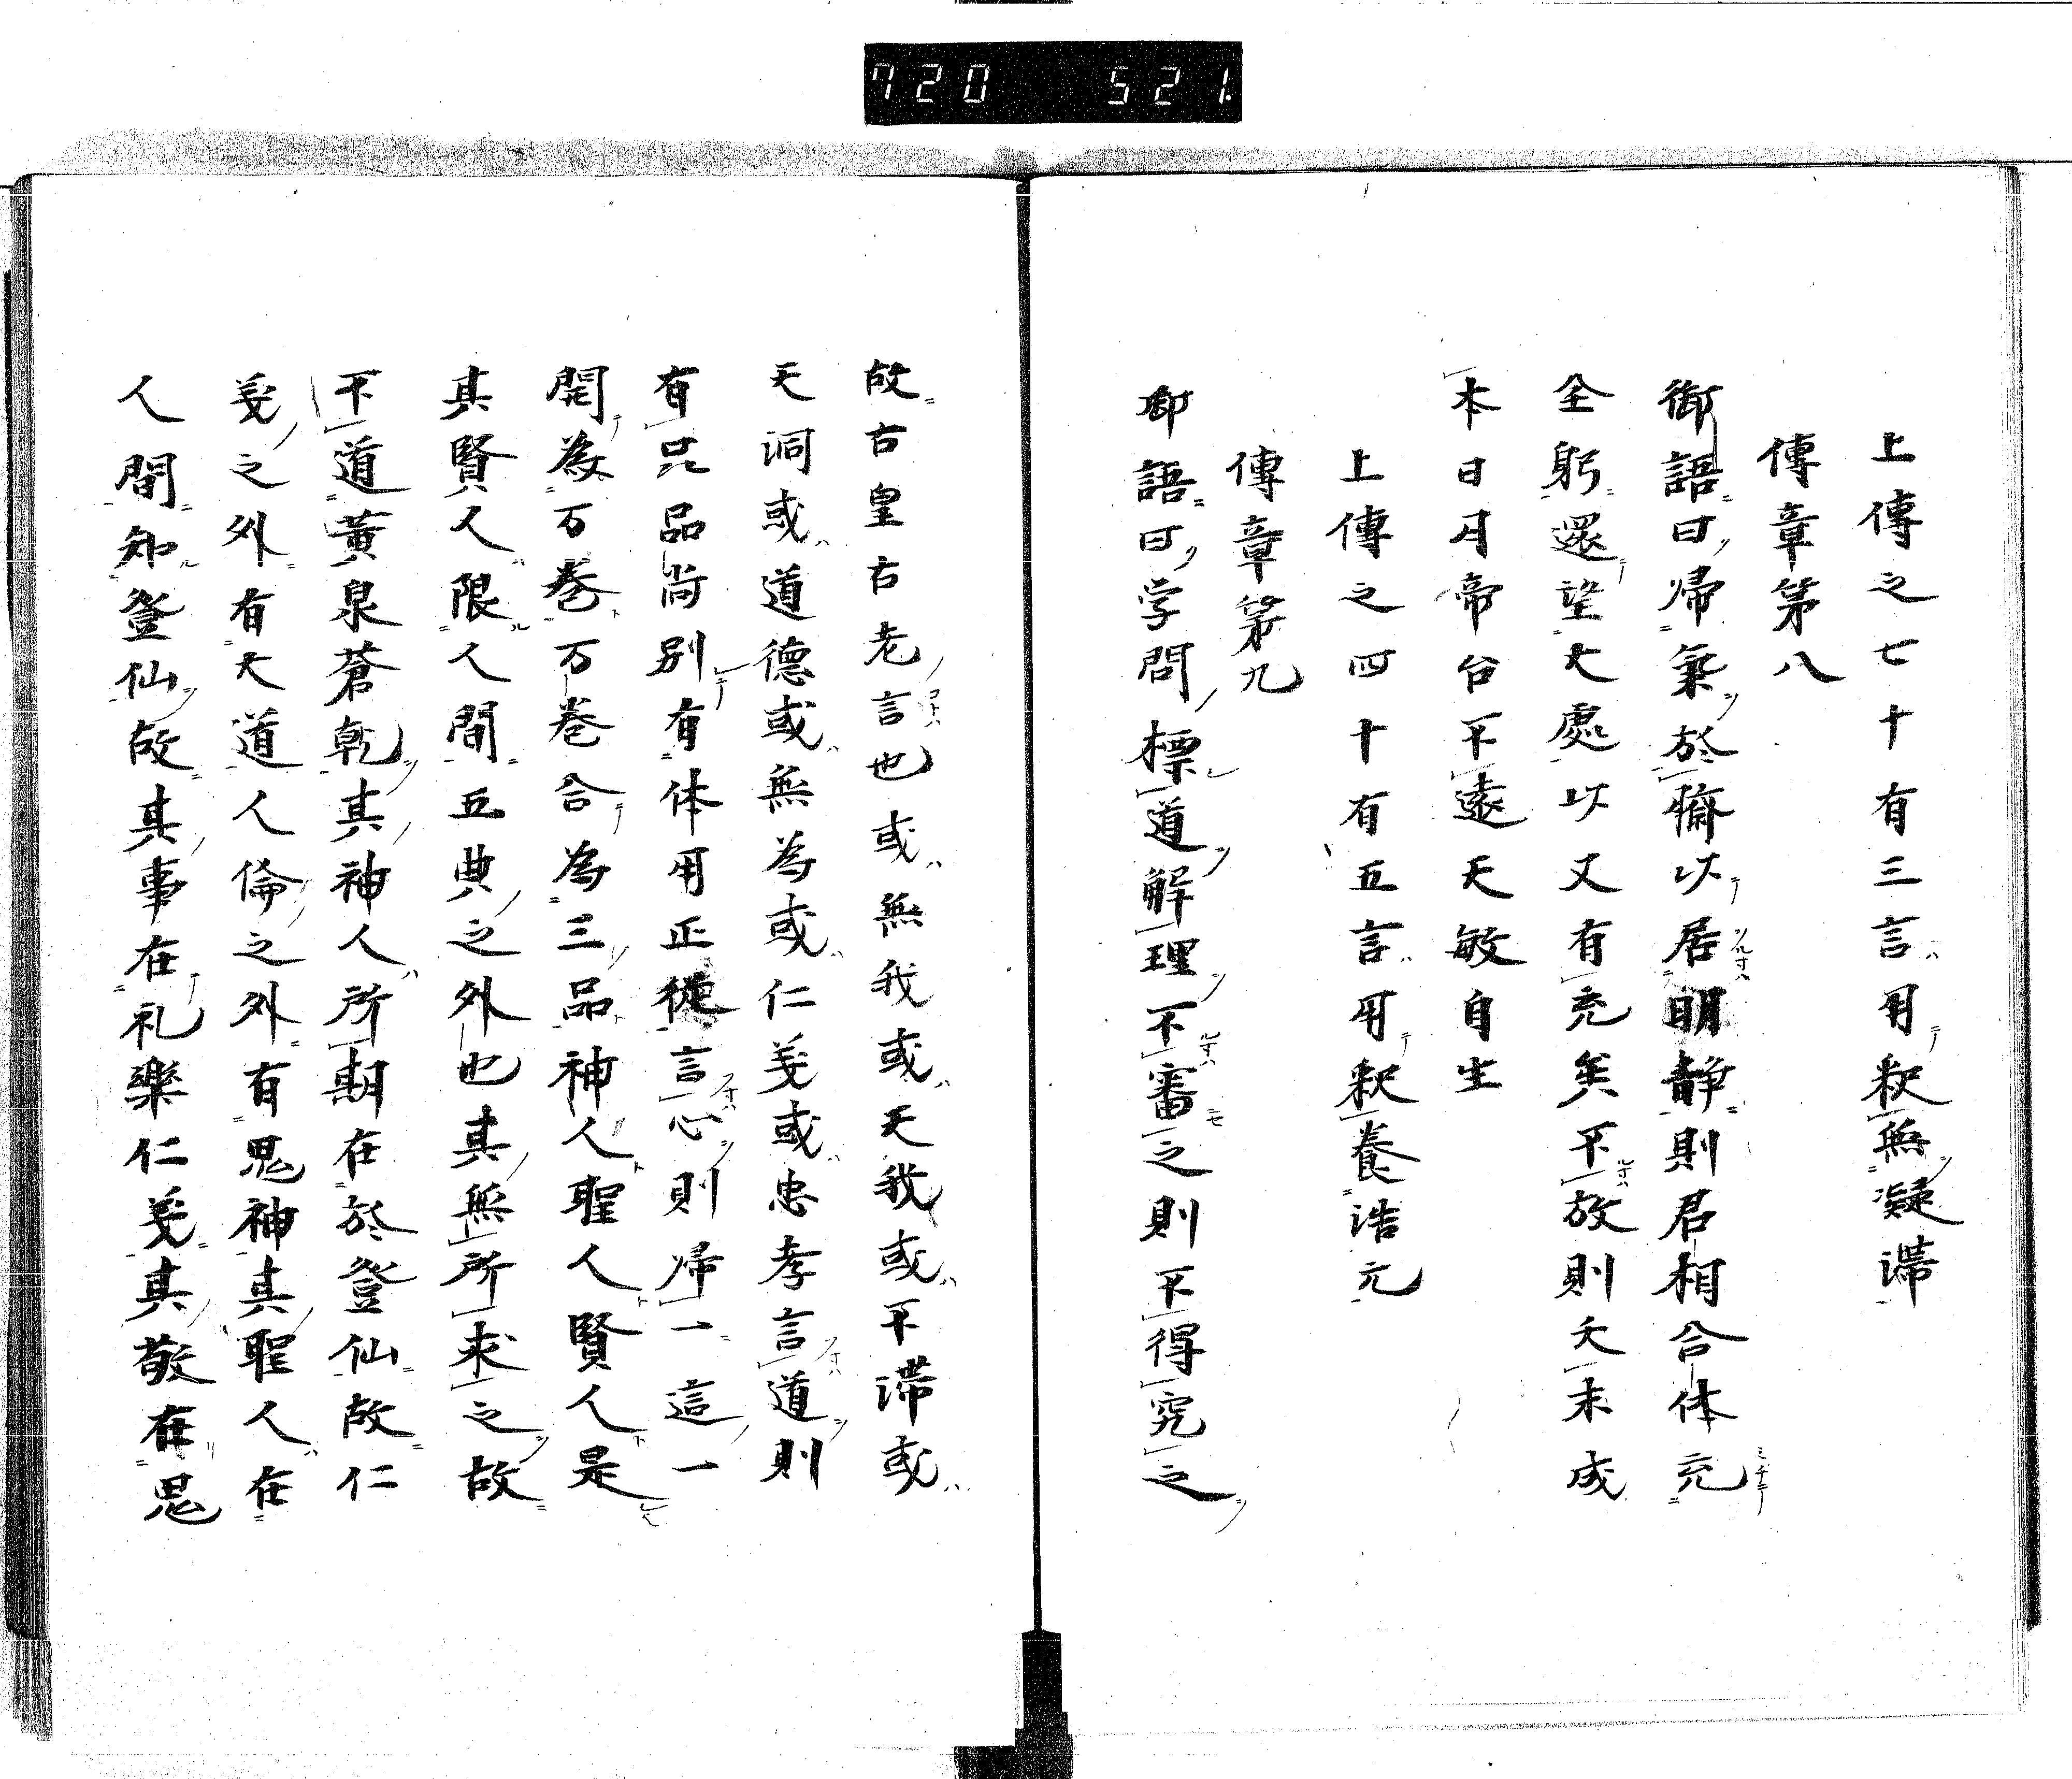 720 521.
上傳之七十有三言用釈無凝滞
傳章第八
御語曰帰氣於臍以居明静則君相合体充
全躬還望大處以又有充矣不放則天未成
本日月帝台不遠天敏自生
上傳之四十有五言用釈養浩元
傳章第九
御語曰学問標道解理不審之則不得究之
故古皇古老言也或無我或天我或不滞或
天洞或道德或無為或仁義或忠孝言道則
有品尚別有体用正從言心則帰一這一
開為万巻万巻合為三品神人聖人賢人是
其賢人限人間五典之外也其無所求之故
不道黄泉蒼乾其神人所期在於登仙故仁
義之外有大道人倫之外有鬼神其聖人在
人間知登仙故其事在礼樂仁義其敬在鬼